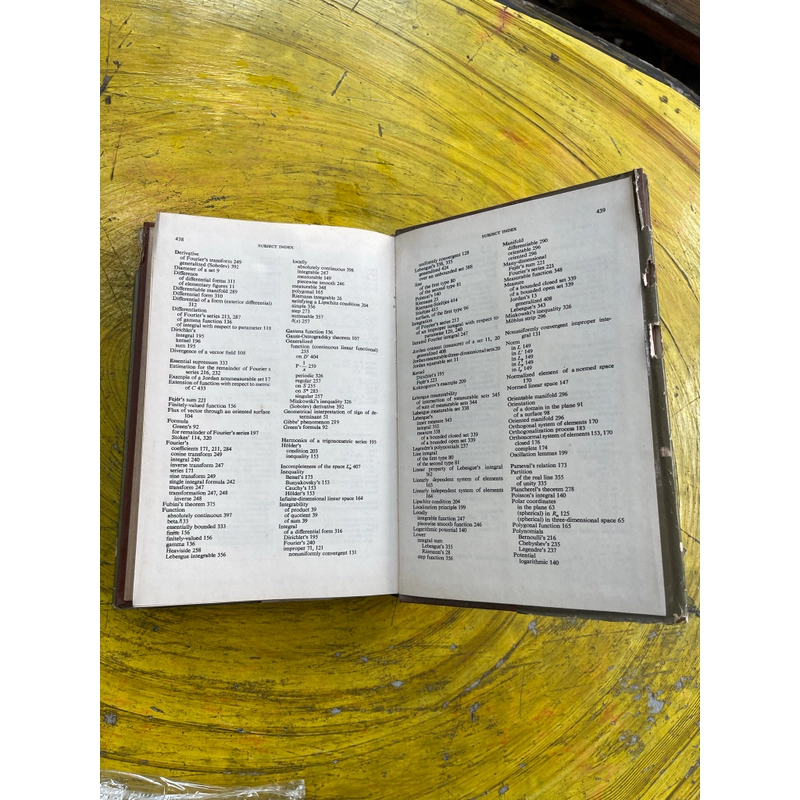 438
SUBJECT INDEX
Derivative
of Fourier's transform 249
generalized (Sobolev) 392
Diameter of a set 9
Difference
of differential forms 311
of elementary figures 11
Differentiable manifold 289
Differential form 310
Differential of a form (exterior differential)
312
Differentiation
of Fourier's series 213, 287
of gamma function 136
of integral with respect to parameter 110
Dirichlet's
integral 195
kernel 196
sum 195
Divergence of a vector field 108
Essential supremum 332
Estimation for the remainder of Fourier's
series 216, 232
Example of a Jordan nonmeasurable set 17
Extention of function with respect to norm
of C 435
Fejér's sum 221
Finitely-valued function 156
Flux of vector through an oriented surface
104
Formula
Green's 92
for remainder of Fourier's series 197
Stokes' 114, 320
Fourier's
coefficients 171, 211, 284
cosine transform 249
integral 240
inverse transform 247
series 171
sine transform 249
single integral formula 242
transform 247
transformation 247, 248
inverse 248
Fubini's theorem 375
Function
absolutely continuous 397
beta 135
essentially bounded 333
finite 156
finitely-valued 156
gamma 136
Heaviside 258
Lebesgue integrable 356
locally
absolutely continuous 398
integrable 287
measurable 149
piecewise smooth 246
measurable 348
polygonal 165
Riemann integrable 26
satisfying a Lipschitz condition 204
simple 356
step 273
summable 357
θ(x) 257
Gamma function 136
Gauss-Ostrogradsky theorem 107
Generalized
function (continuous linear functional)
255
on D' 404
P · 1/x 259
periodic 326
regular 257
on S 255
on S* 283
singular 257
Minkowski's inequality 326
(Sobolev) derivative 392
Geometrical interpretation of sign of de-
terminant 51
Gibbs' phenomenon 219
Green's formula 92
Harmonics of a trigonometric series 195
Hölder's
condition 203
inequality 153
Incompleteness of the space
407
Inequality
Bessel's 173
Bunyakovskii's 153
Cauchy's 153
Hölder's 153
Infinite-dimensional linear space 164
Integrability
of product 39
of quotient 39
of sum 39
Integral
of a differential form 316
Dirichlet's 195
Fourier's 240
improper 71, 121
nonuniformly convergent 131
439
SUBJECT INDEX
uniformly convergent 128
Lebesgue's 338, 355
generalized 424
over an unbounded set 388
line
of the first type 80
of the second type 81
Poisson's 140
Riemann 25
Riemann-Stieltjes 414
Stieltjes 415
surface, of the first type 96
Integration
of Fourier's series 213
of an improper integral with respect to
parameter 125, 240
Iterated Fourier integral 247
Jordan content (measure) of a set 11, 20
generalized 408
Jordan measurable three-dimensional sets 20
Jordan measurable 14
of a square 14
Kernel
Dirichlet's 195
Fejér's 221
Kolmogorov's example 209
Lebesgue measurability
of intersection of measurable sets 345
of sum of measurable sets 344
Lebesgue measurable set 338
Lebesgue's
inner measure 343
integral 355
measure 338
of a bounded closed set 339
of a bounded open set 339
Legendre's polynomials 237
Line integral
of the first type 80
of the second type 81
Linear property of Lebesgue's integral
362
Linearly dependent system of elements
163
Linearly independent system of elements
164
Lipschitz condition 204
Localization principle 199
Locally
integrable function 247
piecewise smooth function 246
Logarithmic potential 140
Lower
integral sum
Lebesgue's 355
Riemann's 28
step function 356
Manifold
differentiable 290
orientable 296
oriented 296
Many-dimensional
Fejér's sum 221
Fourier's series 221
Measurable function 348
Measure
of a bounded closed set 339
of a bounded open set 339
Jordan's 13
generalized 408
Lebesgue's 343
Minkowski's inequality 326
Möbius strip 296
Nonuniformly convergent improper inte-
gral 131
Norm
in L 149
in L' 149
Normalized element of a normed space
170
Normed linear space 147
Orientable manifold 296
Orientation
of a domain in the plane 91
of a surface 94
Oriented manifold 296
Orthogonal system of elements 170
Orthogonalization process 183
Orthonormal system of elements 153, 170
closed 176
complete 174
Oscillation lemmas 199
Parseval's relation 173
Partition
of the real line 355
of unity 335
Plancherel's theorem 278
Poisson's integral 140
Polar coordinates
in the plane 63
(spherical) in Rₙ 125
(spherical) in three-dimensional space 65
Polygonal function 165
Polynomials
Bernoulli's 216
Chebyshev's 235
Legendre's 237
Potential
logarithmic 140